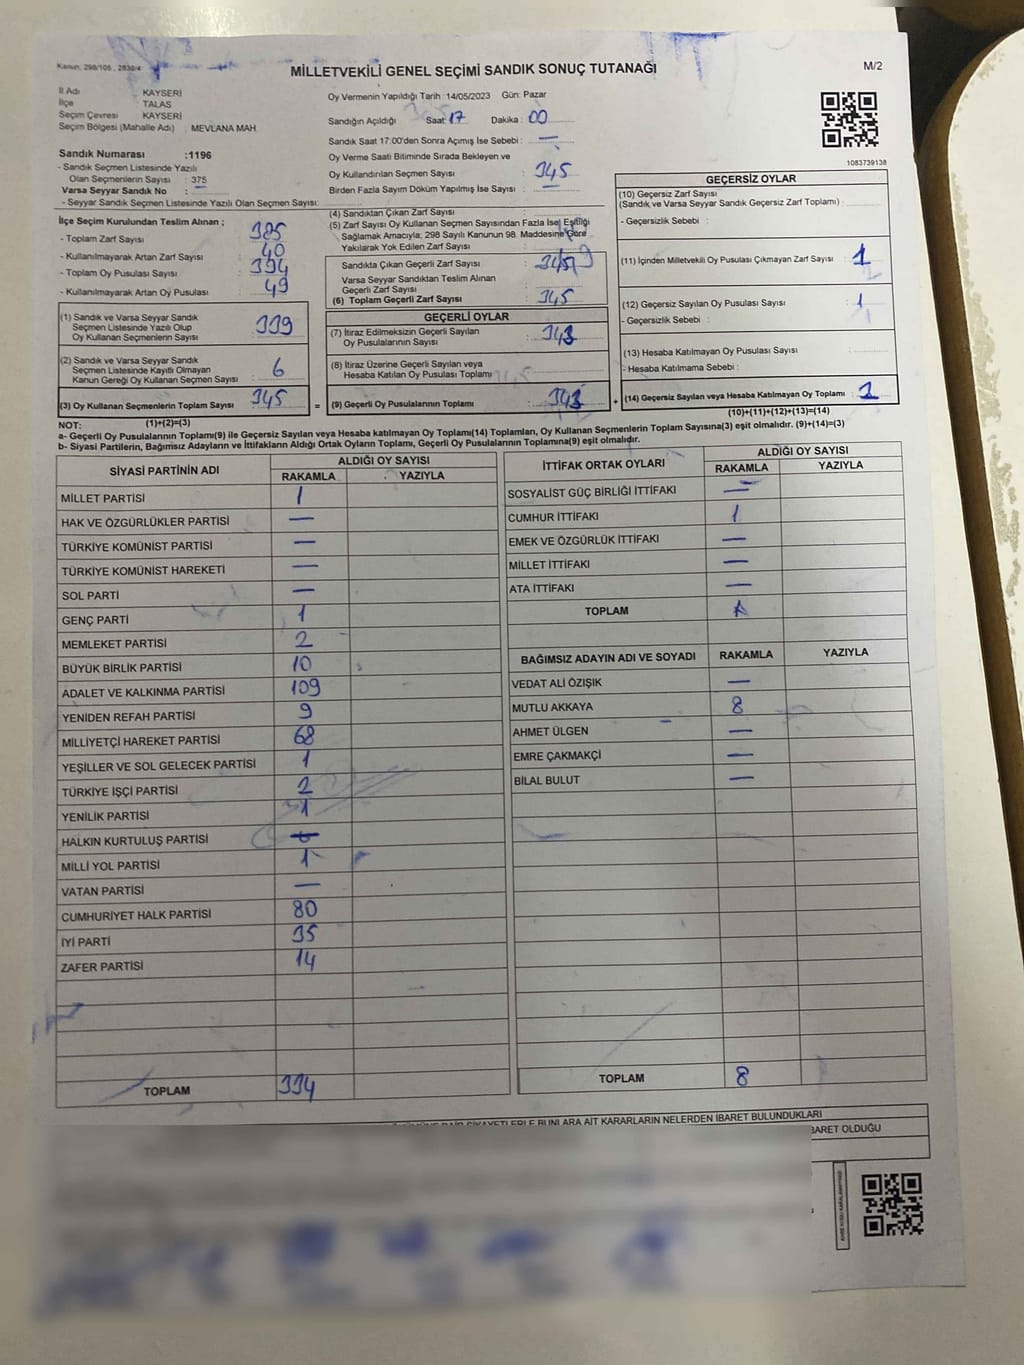 Kanun: 298/105, 2839/4
MİLLETVEKİLİ GENEL SEÇİMİ SANDIK SONUÇ TUTANAĞI
M/2
İl Adı KAYSERİ
İlçe TALAS
Seçim Çevresi KAYSERİ
Seçim Bölgesi (Mahalle Adı) : MEVLANA MAH.
Oy Vermenin Yapıldığı Tarih : 14/05/2023 Gün: Pazar
Sandığın Açıldığı Saat: 17 Dakika : 00
Sandık Saat 17:00'den Sonra Açımış İse Sebebi : —
Oy Verme Saati Bitiminde Sırada Bekleyen ve
Oy Kullandırılan Seçmen Sayısı : 345
Birden Fazla Sayım Döküm Yapılmış İse Sayısı : —
1083739138
Sandık Numarası :1196
- Sandık Seçmen Listesinde Yazılı
Olan Seçmenlerin Sayısı : 375
Varsa Seyyar Sandık No : —
- Seyyar Sandık Seçmen Listesinde Yazılı Olan Seçmen Sayısı:
İlçe Seçim Kurulundan Teslim Alınan ;
- Toplam Zarf Sayısı : 385
- Kullanılmayarak Artan Zarf Sayısı : 40
- Toplam Oy Pusulası Sayısı : 394
- Kullanılmayarak Artan Oy Pusulası : 49
(1) Sandık ve Varsa Seyyar Sandık
Seçmen Listesinde Yazılı Olup
Oy Kullanan Seçmenlerin Sayısı : 339
(2) Sandık ve Varsa Seyyar Sandık
Seçmen Listesinde Kayıtlı Olmayan
Kanun Gereği Oy Kullanan Seçmen Sayısı : 6
(3) Oy Kullanan Seçmenlerin Toplam Sayısı : 345
(1)+(2)=(3)
(4) Sandıktan Çıkan Zarf Sayısı :
(5) Zarf Sayısı Oy Kullanan Seçmen Sayısından Fazla İse| Eşitliği
Sağlamak Amacıyla; 298 Sayılı Kanunun 98. Maddesine Göre
Yakılarak Yok Edilen Zarf Sayısı :
Sandıkta Çıkan Geçerli Zarf Sayısı : 345
Varsa Seyyar Sandıktan Teslim Alınan
Geçerli Zarf Sayısı :
(6) Toplam Geçerli Zarf Sayısı : 345
GEÇERLİ OYLAR
(7) İtiraz Edilmeksizin Geçerli Sayılan
Oy Pusulalarının Sayısı : 343
(8) İtiraz Üzerine Geçerli Sayılan veya
Hesaba Katılan Oy Pusulası Toplamı :
= (9) Geçerli Oy Pusulalarının Toplamı : 343
GEÇERSİZ OYLAR
(10) Geçersiz Zarf Sayısı
(Sandık ve Varsa Seyyar Sandık Geçersiz Zarf Toplamı) :
- Geçersizlik Sebebi :
(11) İçinden Milletvekili Oy Pusulası Çıkmayan Zarf Sayısı : 1
(12) Geçersiz Sayılan Oy Pusulası Sayısı : 1
- Geçersizlik Sebebi :
(13) Hesaba Katılmayan Oy Pusulası Sayısı :
- Hesaba Katılmama Sebebi :
+ (14) Geçersiz Sayılan veya Hesaba Katılmayan Oy Toplamı : 2
(10)+(11)+(12)+(13)=(14)
NOT:
a- Geçerli Oy Pusulalarının Toplamı(9) ile Geçersiz Sayılan veya Hesaba katılmayan Oy Toplamı(14) Toplamları, Oy Kullanan Seçmenlerin Toplam Sayısına(3) eşit olmalıdır. (9)+(14)=(3)
b- Siyasi Partilerin, Bağımsız Adayların ve İttifakların Aldığı Ortak Oyların Toplamı, Geçerli Oy Pusulalarının Toplamına(9) eşit olmalıdır.
SİYASİ PARTİNİN ADI ALDIĞI OY SAYISI
RAKAMLA YAZIYLA
MİLLET PARTİSİ 1
HAK VE ÖZGÜRLÜKLER PARTİSİ —
TÜRKİYE KOMÜNİST PARTİSİ —
TÜRKİYE KOMÜNİST HAREKETİ —
SOL PARTİ —
GENÇ PARTİ 1
MEMLEKET PARTİSİ 2
BÜYÜK BİRLİK PARTİSİ 10
ADALET VE KALKINMA PARTİSİ 109
YENİDEN REFAH PARTİSİ 9
MİLLİYETÇİ HAREKET PARTİSİ 68
YEŞİLLER VE SOL GELECEK PARTİSİ 1
TÜRKİYE İŞÇİ PARTİSİ 2
YENİLİK PARTİSİ 1
HALKIN KURTULUŞ PARTİSİ —
MİLLİ YOL PARTİSİ 1
VATAN PARTİSİ —
CUMHURİYET HALK PARTİSİ 80
İYİ PARTİ 35
ZAFER PARTİSİ 14
TOPLAM 334
İTTİFAK ORTAK OYLARI ALDIĞI OY SAYISI
RAKAMLA YAZIYLA
SOSYALİST GÜÇ BİRLİĞİ İTTİFAKI —
CUMHUR İTTİFAKI 1
EMEK VE ÖZGÜRLÜK İTTİFAKI —
MİLLET İTTİFAKI —
ATA İTTİFAKI —
TOPLAM 1
BAĞIMSIZ ADAYIN ADI VE SOYADI RAKAMLA YAZIYLA
VEDAT ALİ ÖZIŞIK —
MUTLU AKKAYA 8
AHMET ÜLGEN —
EMRE ÇAKMAKÇİ —
BİLAL BULUT —
TOPLAM 8
ŞİKAYETLERLE BUNLARA AİT KARARLARIN NELERDEN İBARET BULUNDUKLARI
İBARET OLDUĞU